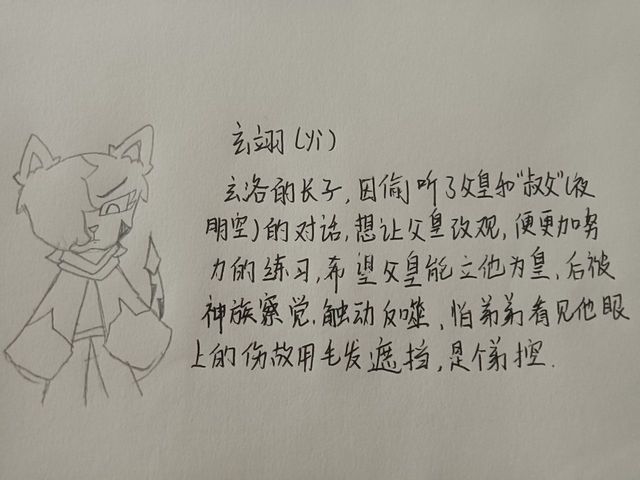 玄翊(yì)
玄洛的长子,因偷听了父皇和“叔父”(夜
明空)的对话,想让父皇改观,便更加努
力的练习,希望父皇能立他为皇,后被
神族察觉.触动反噬、怕弟弟看见他眼
上的伤故用毛发遮挡,是个弟控.